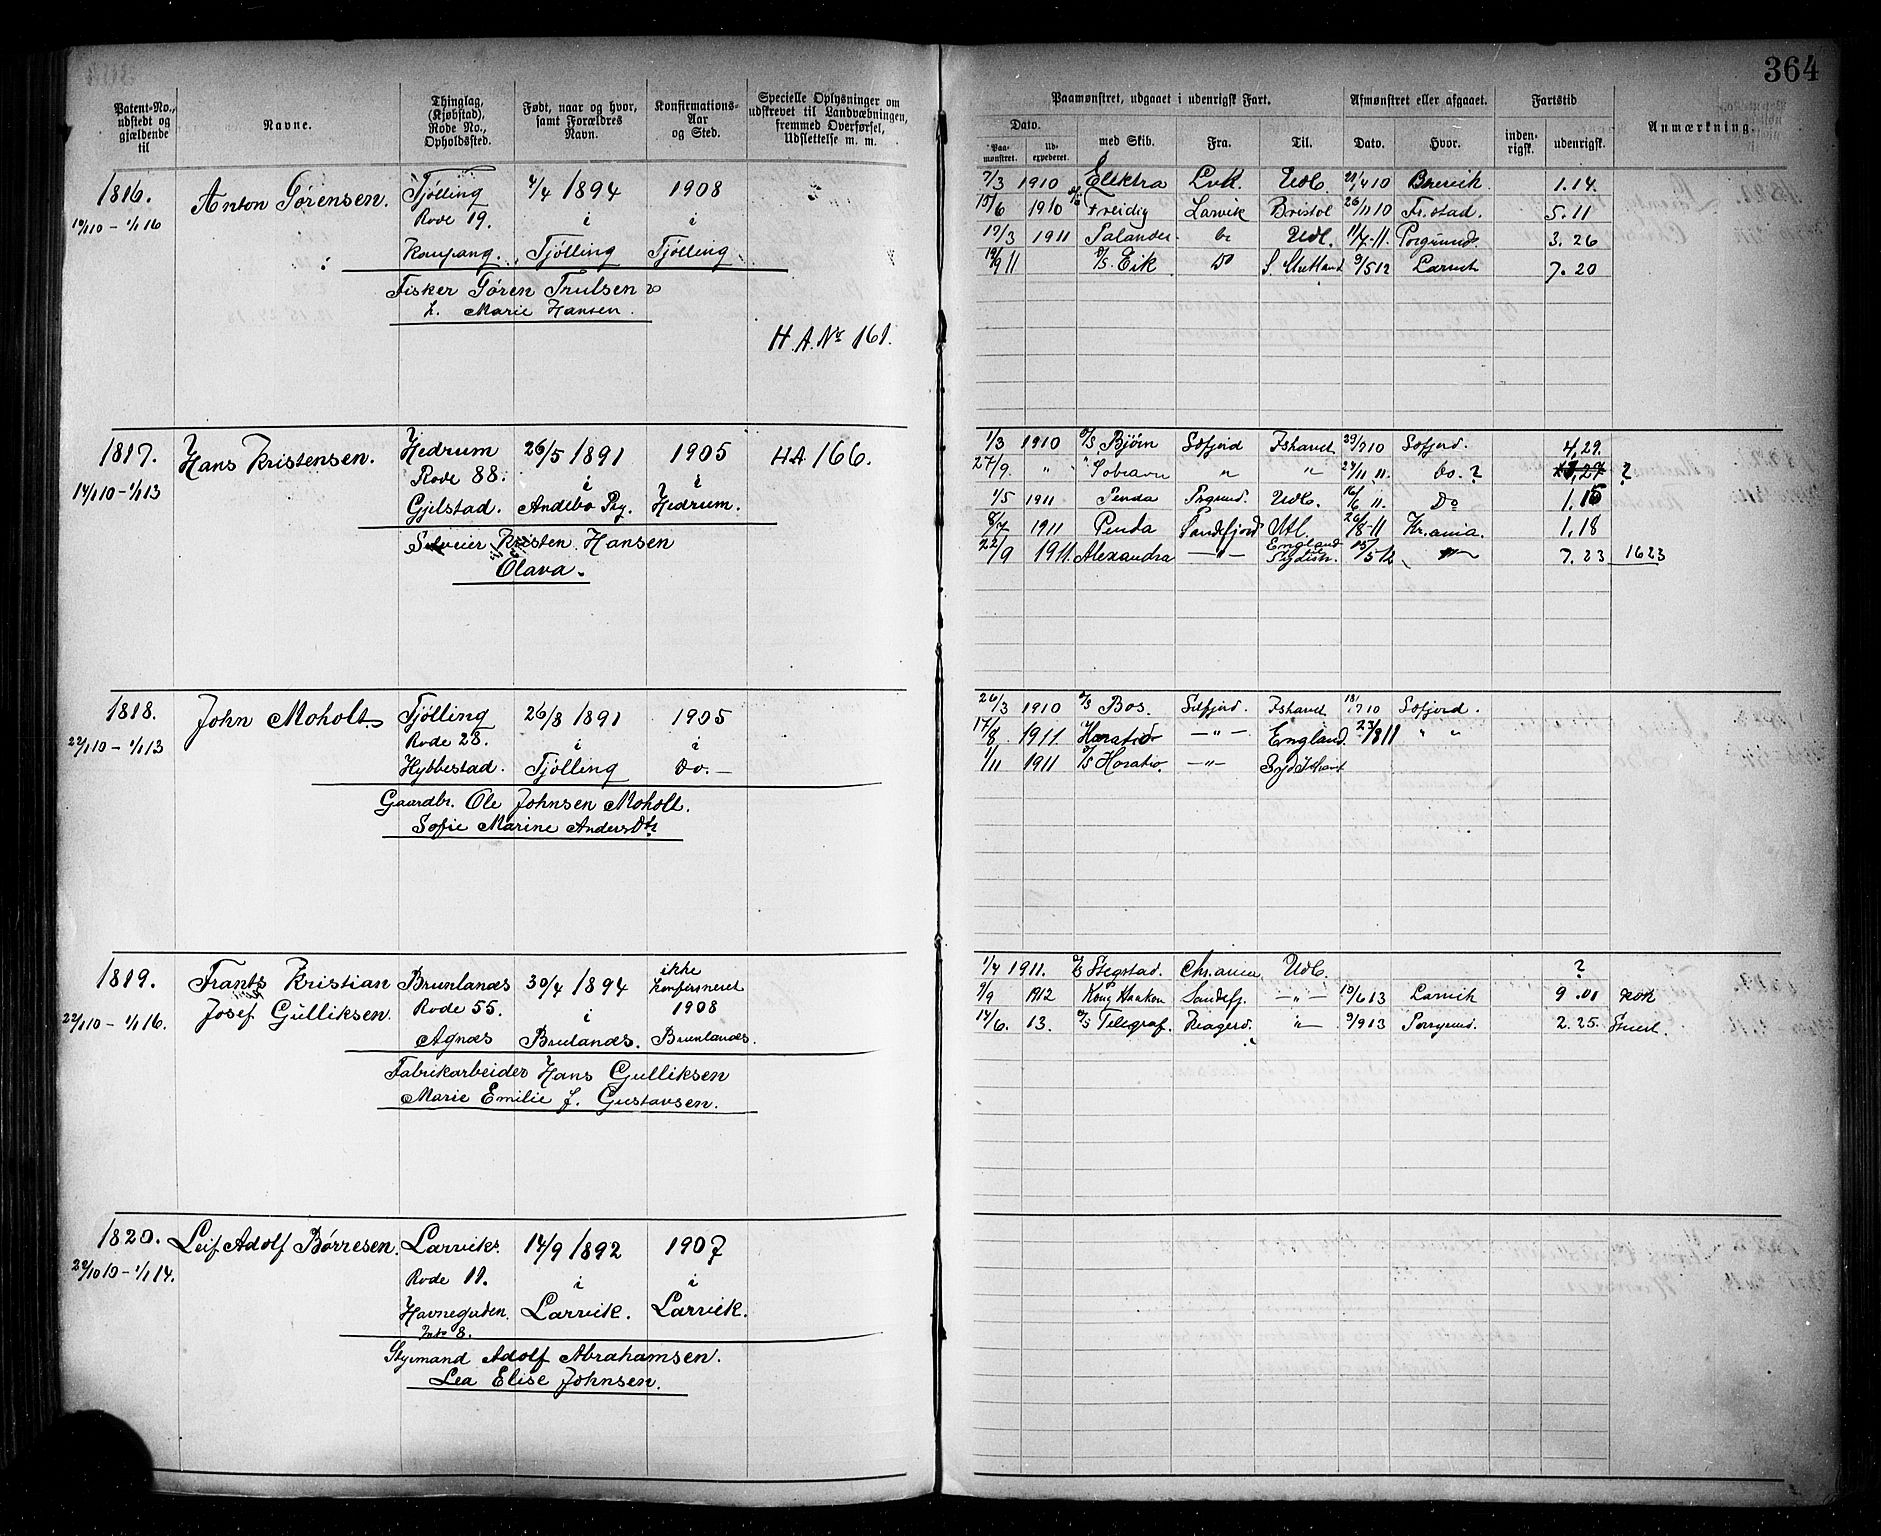 364
Patent-No., udstedt og gjældende til
Navne.
Thinglag, (Kjøbstad), Rode No., Opholdssted.
Født, naar og hvor, samt Forældres Navn.
Konfirmations-Aar og Sted.
Specielle Oplysninger om udskrevet til Landvæbningen, fremmed Overførsel, Udslettelse m. m.
Paamønstret, udgaaet i udenrigsk Fart.
Dato.
Paa-mønstret.
Ud-expederet.
med Skib.
Fra.
Til.
Afmønstret eller afgaaet.
Dato.
Hvor.
Fartstid
inden-rigsk.
udenrigsk.
Anmærkning.
1816. Anton Sørensen. Tjølling 4/4 1894 1908
1/1 16 Rode 19. i i
Kaupang. Tjølling Tjølling
Fisker Søren Trulsen
Marie Hansen.
H.A. No 161.
7/3 1910 Elektra Lvk. Udl. 10 Brevik. 1.14.
15/6 1910 Freidig Larvik Bristol 26/11 10 Fr.stad. 5.11
17/3 1911 Palander Udl. 11/7-11. Porsgrund 3.26
19/9 11 D/S Eik Do S. Shetland 9/5 12 Larvik 7.20
1817. Hans Kristensen. Hedrum 26/5 1891 1905 HA 166.
14/1 10 - 1/1 13 Rode 88. i i
Gjelstad. Andebo Pg. Hedrum.
Kristen Hansen
Olava.
1/3 1910 D/S Bjørn Sefjord Ishavet 29/7 10 Sefjord. 4,29.
27/9. " " " " 11. Do. ? ?
1/5 1911 Penda Udl. 16/6 11. Do 1.15
8/7 1911 Penda Sandefjord Utl. 26/8-11 Kr.ania. 1.18
22/9 1911. Alexandra -"- England 15/5 12 -"- 7.23 1623
1818. John Moholt Tjølling 26/8 1891 1905
22/1 10 - 1/1 13 Rode 28. i i
Hybbestad. Tjølling Do. -
Gaardbr. Ole Johnsen Moholt.
Sofie Marine AndersDtr
26/3 1910 D/S Bos. Sefjord. Ishavet 10 Sefjord.
17/8 1911 Horatio -"- England. 23/8 11 " "
1/11 1911 D/S Horatio. -"- Syd Ishavet
1819. Frants Kristian Brunlanæs 30/4 1894 ikke konfirmeret
22/1 10 - 1/1 16. Josef Gulliksen. Rode 55. i 1908
Agnæs Brulanæs. Brunlanæs.
Fabrikarbeider Hans Gulliksen
Marie Emilie f. Gustavsen.
1/4 1911. Chr.ania Udl. ?
9/9 1912 Kong Haakon Sandefj. -"- 19/6 13 Larvik 9.01 kok
14/6. 13. D/S Telegraf. Kragerø. -"- 9/9 13 Porsgrund. 2.25.
1820. Leif Adolf Børresen. Larviks. 14/9 1892 1907
22/10 10 - 1/1 14. Rode 11. i i
Havnegaden Larvik. Larvik.
8.
Styrmand Adolf Abrahamsen.
Lea Elise Johnsen.